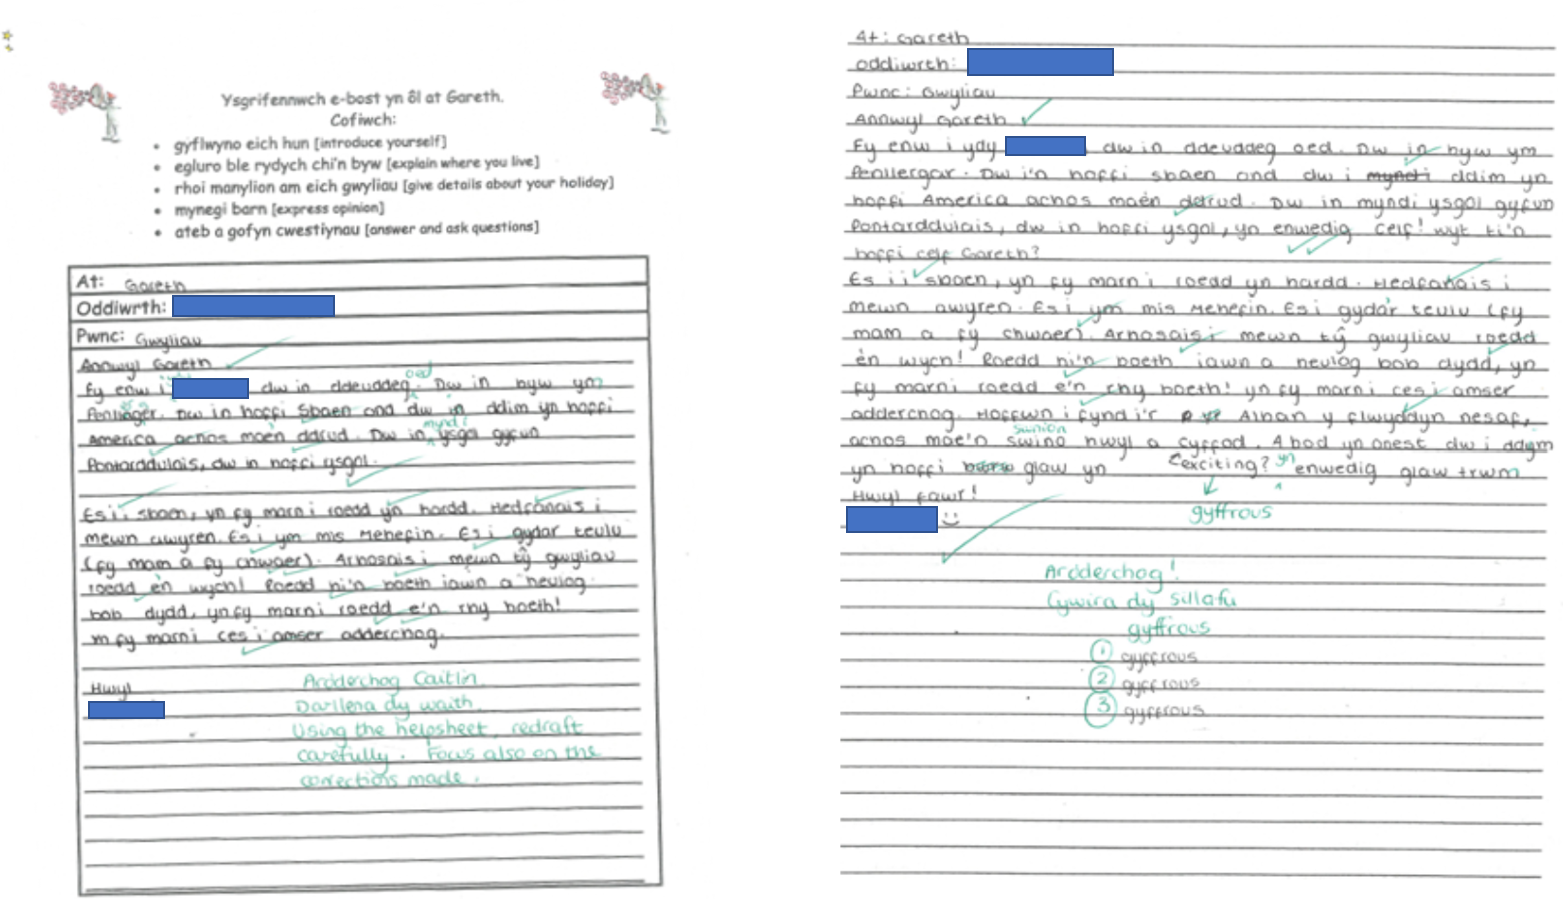 Ysgrifennwch e-bost yn ôl at Gareth.
Cofiwch:
• gyflwyno eich hun [introduce yourself]
• egluro ble rydych chi'n byw [explain where you live]
• rhoi manylion am eich gwyliau [give details about your holiday]
• mynegi barn [express opinion]
• ateb a gofyn cwestiynau [answer and ask questions]
At: Gareth
Oddiwrth:
Pwnc: Gwyliau
Annwyl Gareth
oed
Fy enw i dw in ddeuddeg. Dw in byw ym
Penllager. Dw in hoffi Sbaen ond dw in ddim yn hoffi
myndi
America achos maèn ddrud. Dw in ysgol gyfun
Pontarddulais, dw in hoffi ysgol.
Es i i sbaen, yn fy marn i roedd yn hardd. Hedfanais i
mewn awyren. Es i ym mis Mehefin. Es i gydar teulu
(fy mam a fy chwaer). Arhosais i mewn tŷ gwyliau
roedd èn wych! Roedd hi'n boeth iawn a heulog
bob dydd, yn fy marn i roedd e'n rhy boeth!
yn fy marn i ces i amser adderchog.
Hwyl
Ardderchog Caitlin.
Darllena dy waith.
Using the helpsheet, redraft
carefully. Focus also on the
corrections made.
At: Gareth
oddiwrth:
Pwnc: Gwyliau
Annwyl Gareth
Fy enw i ydy dw in ddeuddeg oed. Dw in byw ym
Penllergar. Dw i'n hoffi sbaen ond dw i myndi ddim yn
hoffi America achos maèn ddrud. Dw in myndi ysgol gyfun
Pontarddulais, dw in hoffi ysgol, yn enwedig celf! wyt ti'n
hoffi celf Gareth?
Es i i sbaen, yn fy marn i roedd yn hardd. Hedfanais i
mewn awyren. Es i ym mis Mehefin. Es i gydar teulu (fy
mam a fy chwaer). Arhosais i mewn tŷ gwyliau roedd
èn wych! Roedd hi'n boeth iawn a heulog bob dydd, yn
fy marn i roedd e'n rhy boeth! yn fy marn i ces i amser
adderchog. Hoffwn i fynd i'r Alban y flwyddyn nesaf,
swnion
achos mae'n swino hwyl a cyffod. A bod yn onest dw i ddim
yn hoffi glaw yn exciting? yn enwedig glaw trwm
Hwyl fawr!
gyffrous
Ardderchog!
Cywira dy sillafu
gyffrous
1 gyffrous
2 gyffrous
3 gyffrous